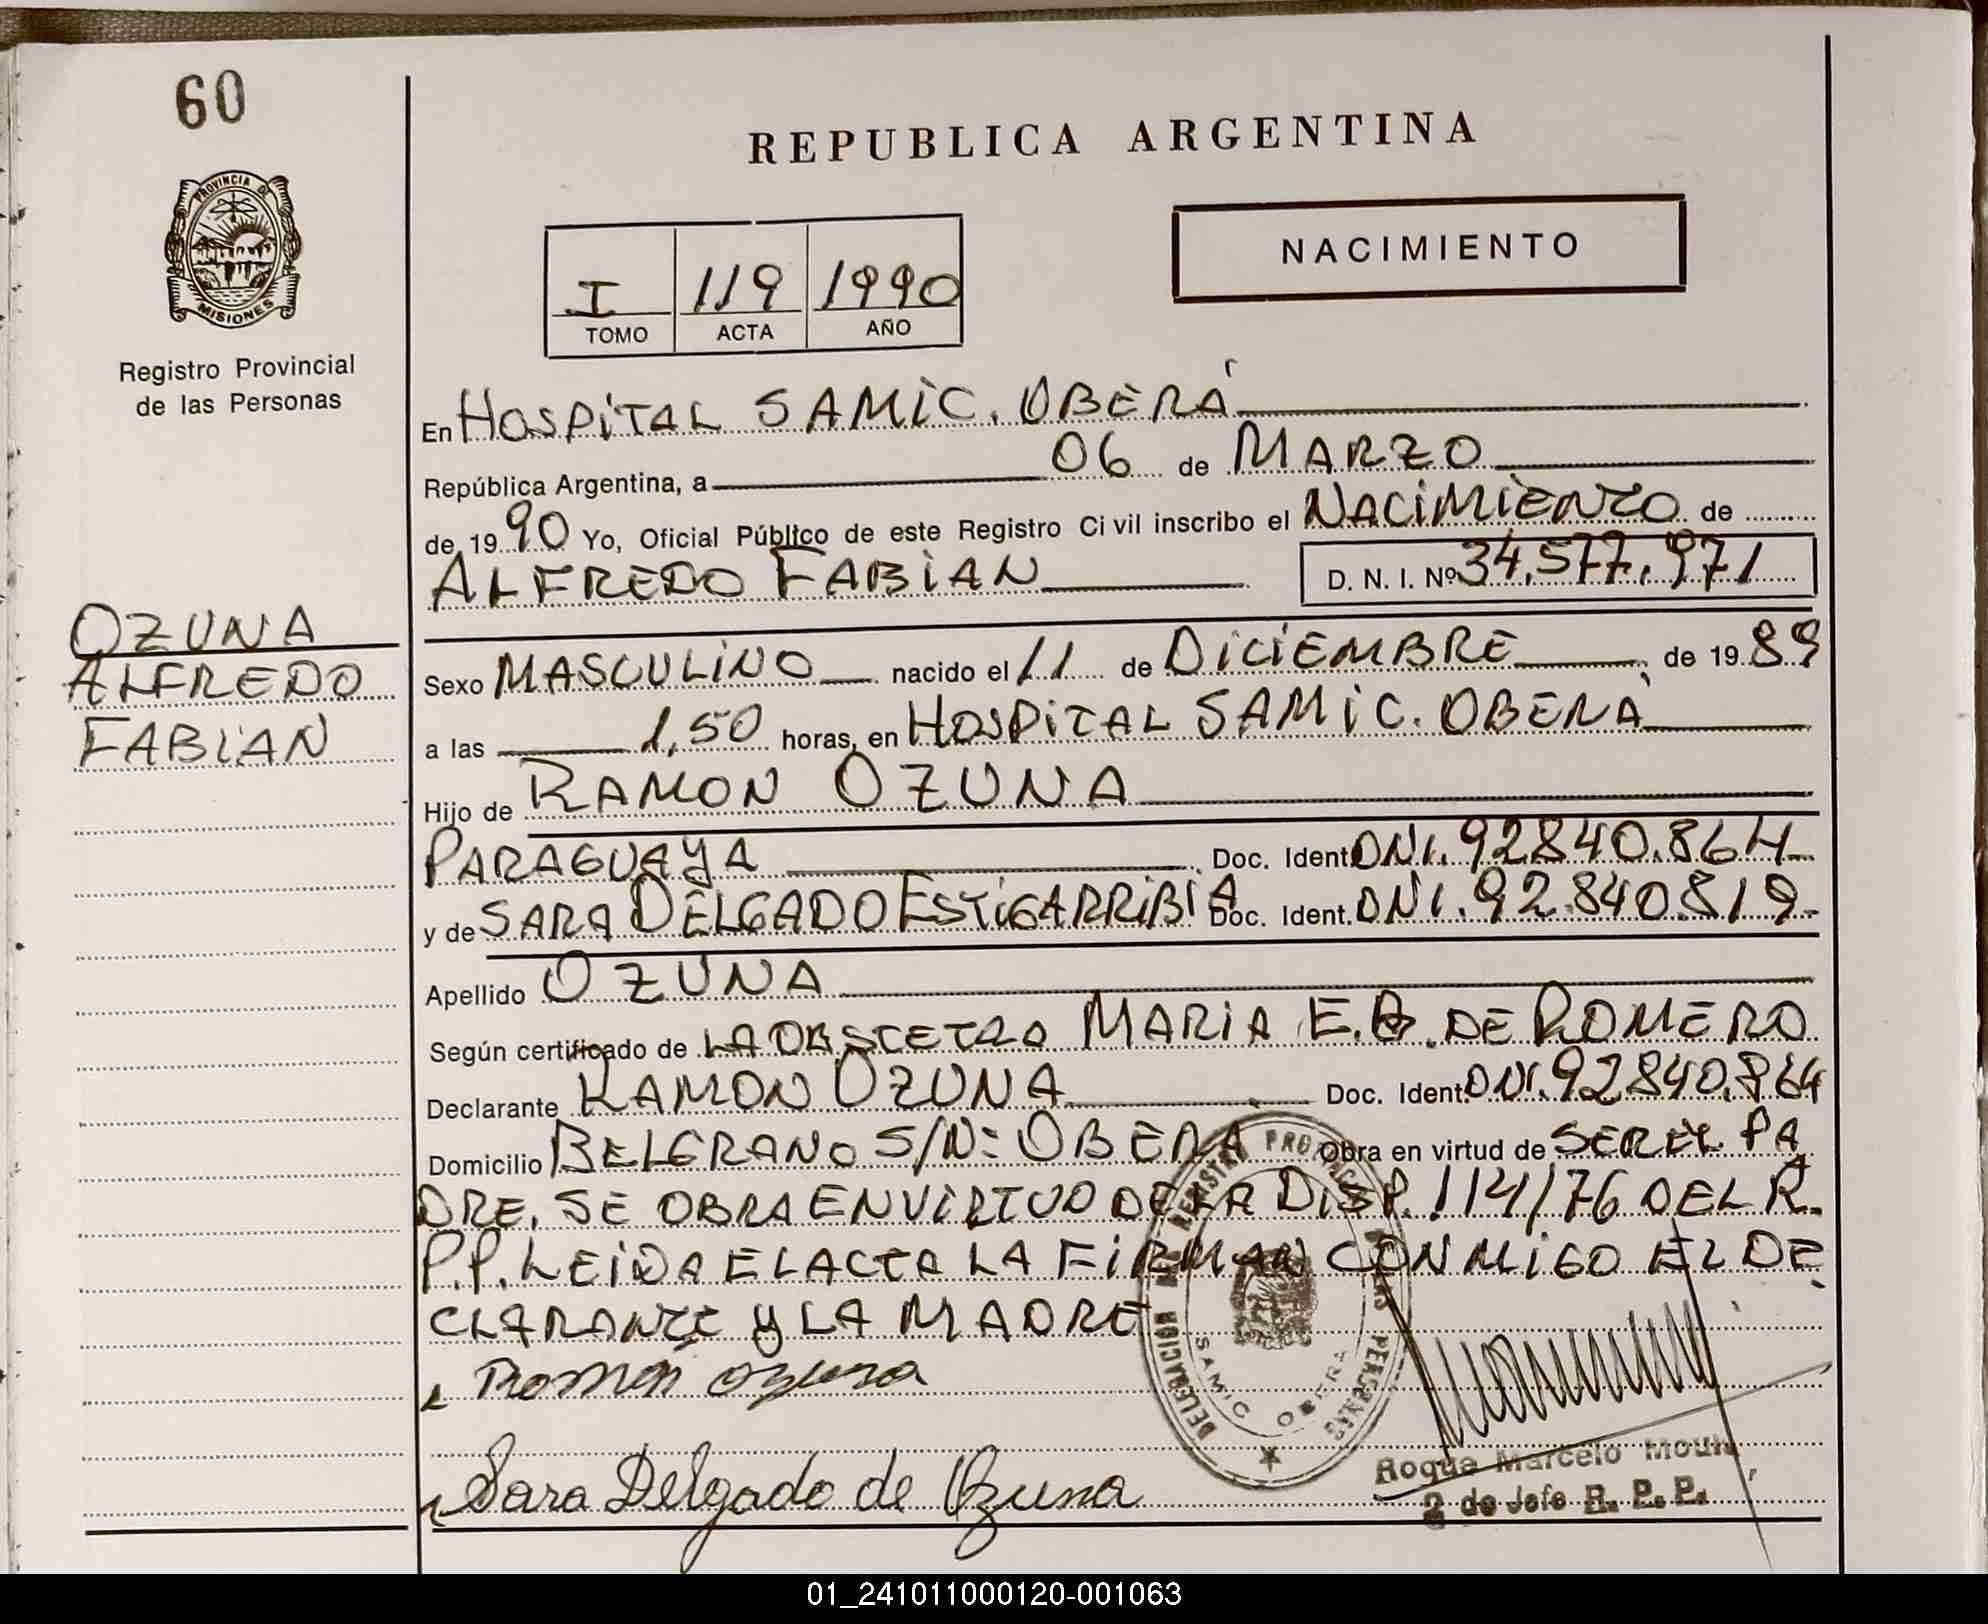 60
REPUBLICA ARGENTINA
PROVINCIA DE
MISIONES
Registro Provincial
de las Personas
I 119 1990
TOMO ACTA AÑO
NACIMIENTO
En HOSPITAL SAMIC. OBERÁ
República Argentina, a 06 de MARZO
de 1990 Yo, Oficial Público de este Registro Civil inscribo el NACIMIENTO de
ALFREDO FABIAN D. N. I. Nº 34.577.971
OZUNA
ALFREDO
FABIAN
Sexo MASCULINO nacido el 11 de DICIEMBRE de 1989
a las 1,50 horas, en HOSPITAL SAMIC. OBERÁ
Hijo de RAMON OZUNA
PARAGUAYA Doc. Ident. DNI. 92840.864
y de SARA DELGADO ESTIGARRIBIA Doc. Ident. DNI. 92.840.819
Apellido OZUNA
Según certificado de LA OBSTETRA MARIA E. DE ROMERO
Declarante RAMON OZUNA Doc. Ident. DNI. 92840.864
Domicilio BELGRANO S/N: OBERA Obra en virtud de SER EL PA
DRE. SE OBRA EN VIRTUD DE LA DISP. 114/76 DEL R.
P.P. LEIDA EL ACTA LA FIRMAN CONMIGO EL DE
CLARANTE Y LA MADRE
Ramón Ozuna
DELEGACION REGISTRO PROVINCIAL DE LAS PERSONAS
SAMIC OBERA
Sara Delgado de Ozuna
Roque Marcelo
2 do Jefe R. P. P.
01_241011000120-001063